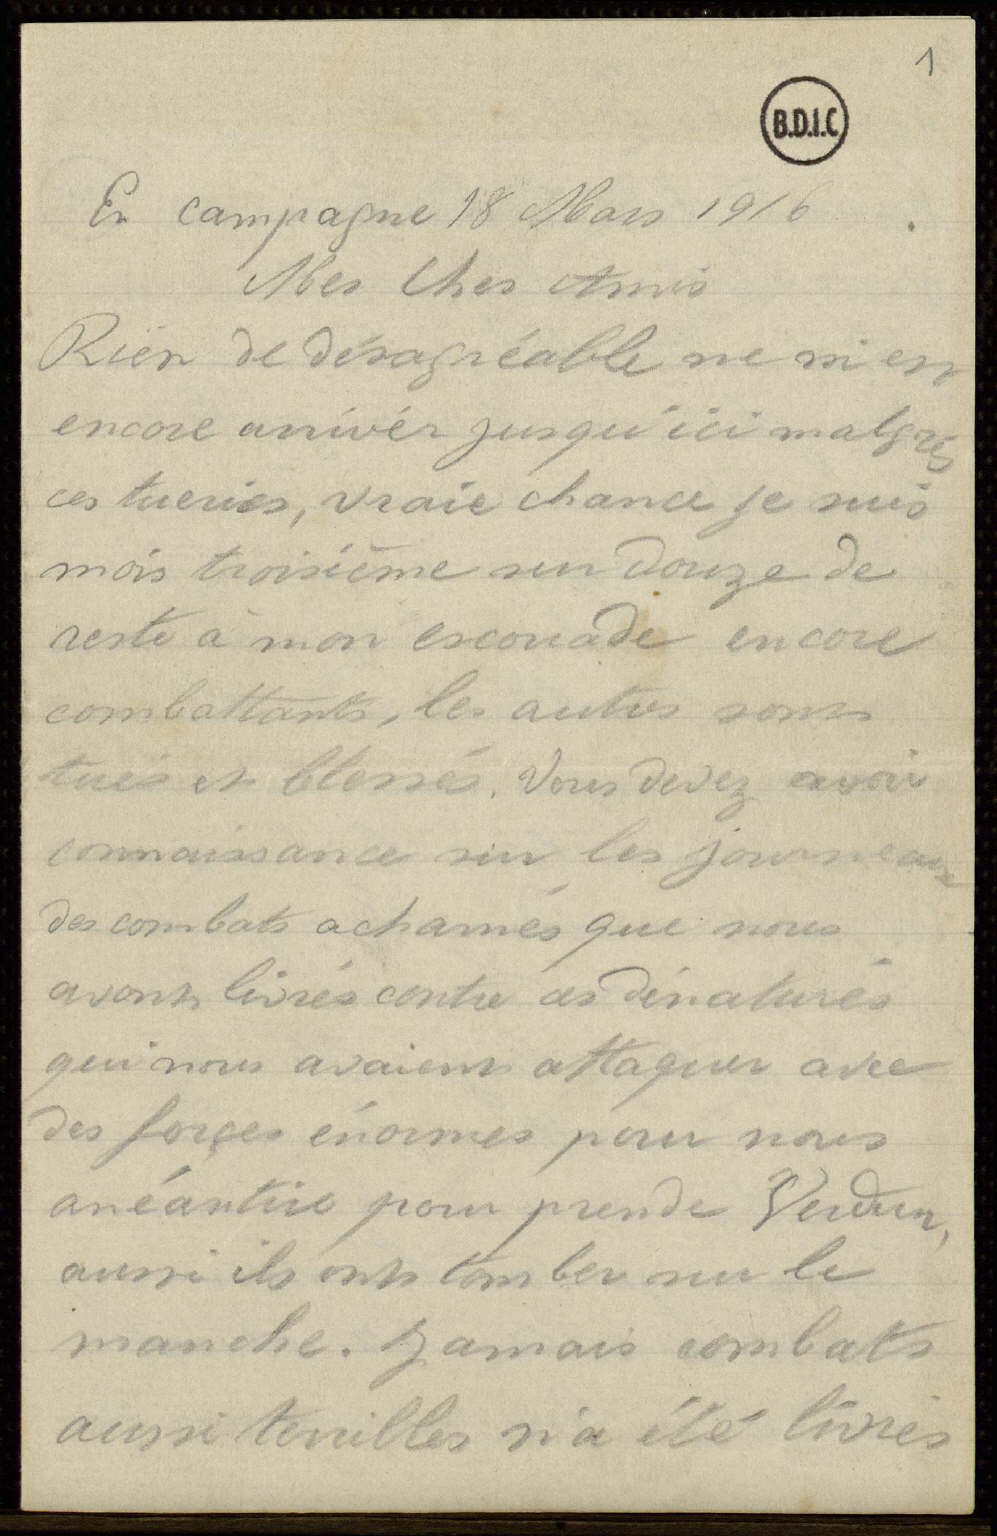 1
B.D.I.C
En campagne 18 Mars 1916
Mes Cher Amis
Rien de désagréable ne m'est
encore arrivér jusqu'ici malgrés
ces tueries, vraie chance je suis
mois troisième sur douze de
reste à mon escouade encore
combattants, les autres sont
tués et blessés. Vous devez avoir
connaissance sur les journeaux
des combats acharnés que nous
avont livrés contre ces dénaturés
qui nous avaient attaquer avec
des forçes énormes pour nous
anéantire pour prende Verdun,
aussi ils onts tomber sur le
manche. Jamais combats
aussi terrilles n'a été livrés